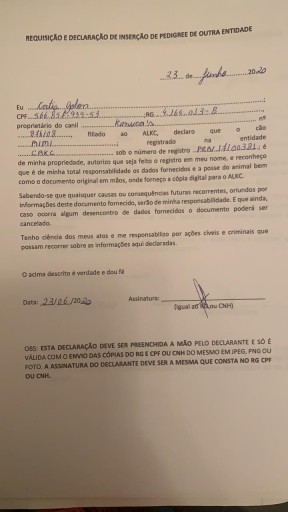 REQUISIÇÃO E DECLARAÇÃO DE INSERÇÃO DE PEDIGREE DE OUTRA ENTIDADE
23 de Junho 2020
Eu
CPF RG
proprietário do canil nº
838/08 filiado ao ALKC, declaro que o cão
MIMI registrado na entidade
CBKC sob o número de registro é
de minha propriedade, autorizo que seja feito o registro em meu nome, e reconheço
que é de minha total responsabilidade os dados fornecidos e a posse do animal bem
como o documento original em mãos, onde forneço a cópia digital para o ALKC.
Sabendo-se que quaisquer causas ou consequências futuras recorrentes, oriundos por
informações deste documento fornecido, serão de minha responsabilidade. E que ainda,
caso ocorra algum desencontro de dados fornecidos o documento poderá ser
cancelado.
Tenho ciência dos meus atos e me responsabilizo por ações cíveis e criminais que
possam recorrer sobre as informações aqui declaradas.
O acima descrito é verdade e dou fé
Data: 23/06/2020 Assinatura:
(igual ao RG ou CNH)
OBS: ESTA DECLARAÇÃO DEVE SER PREENCHIDA A MÃO PELO DECLARANTE E SÓ É
VÁLIDA COM O ENVIO DAS CÓPIAS DO RG E CPF OU CNH DO MESMO EM JPEG, PNG OU
FOTO. A ASSINATURA DO DECLARANTE DEVE SER A MESMA QUE CONSTA NO RG CPF
OU CNH.